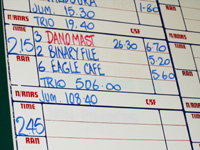 JUM 19.30 1.80
TRIO 19.40
N/RNRS CSI
215 3 DANOMAST 26.30 6.70
2 BINARY FILE 5.20
RAN 6 EAGLE CAFE 5.60
TRIO 506.00
N/RNRS JUM 108.40 CSI
245
RAN
N/RNRS